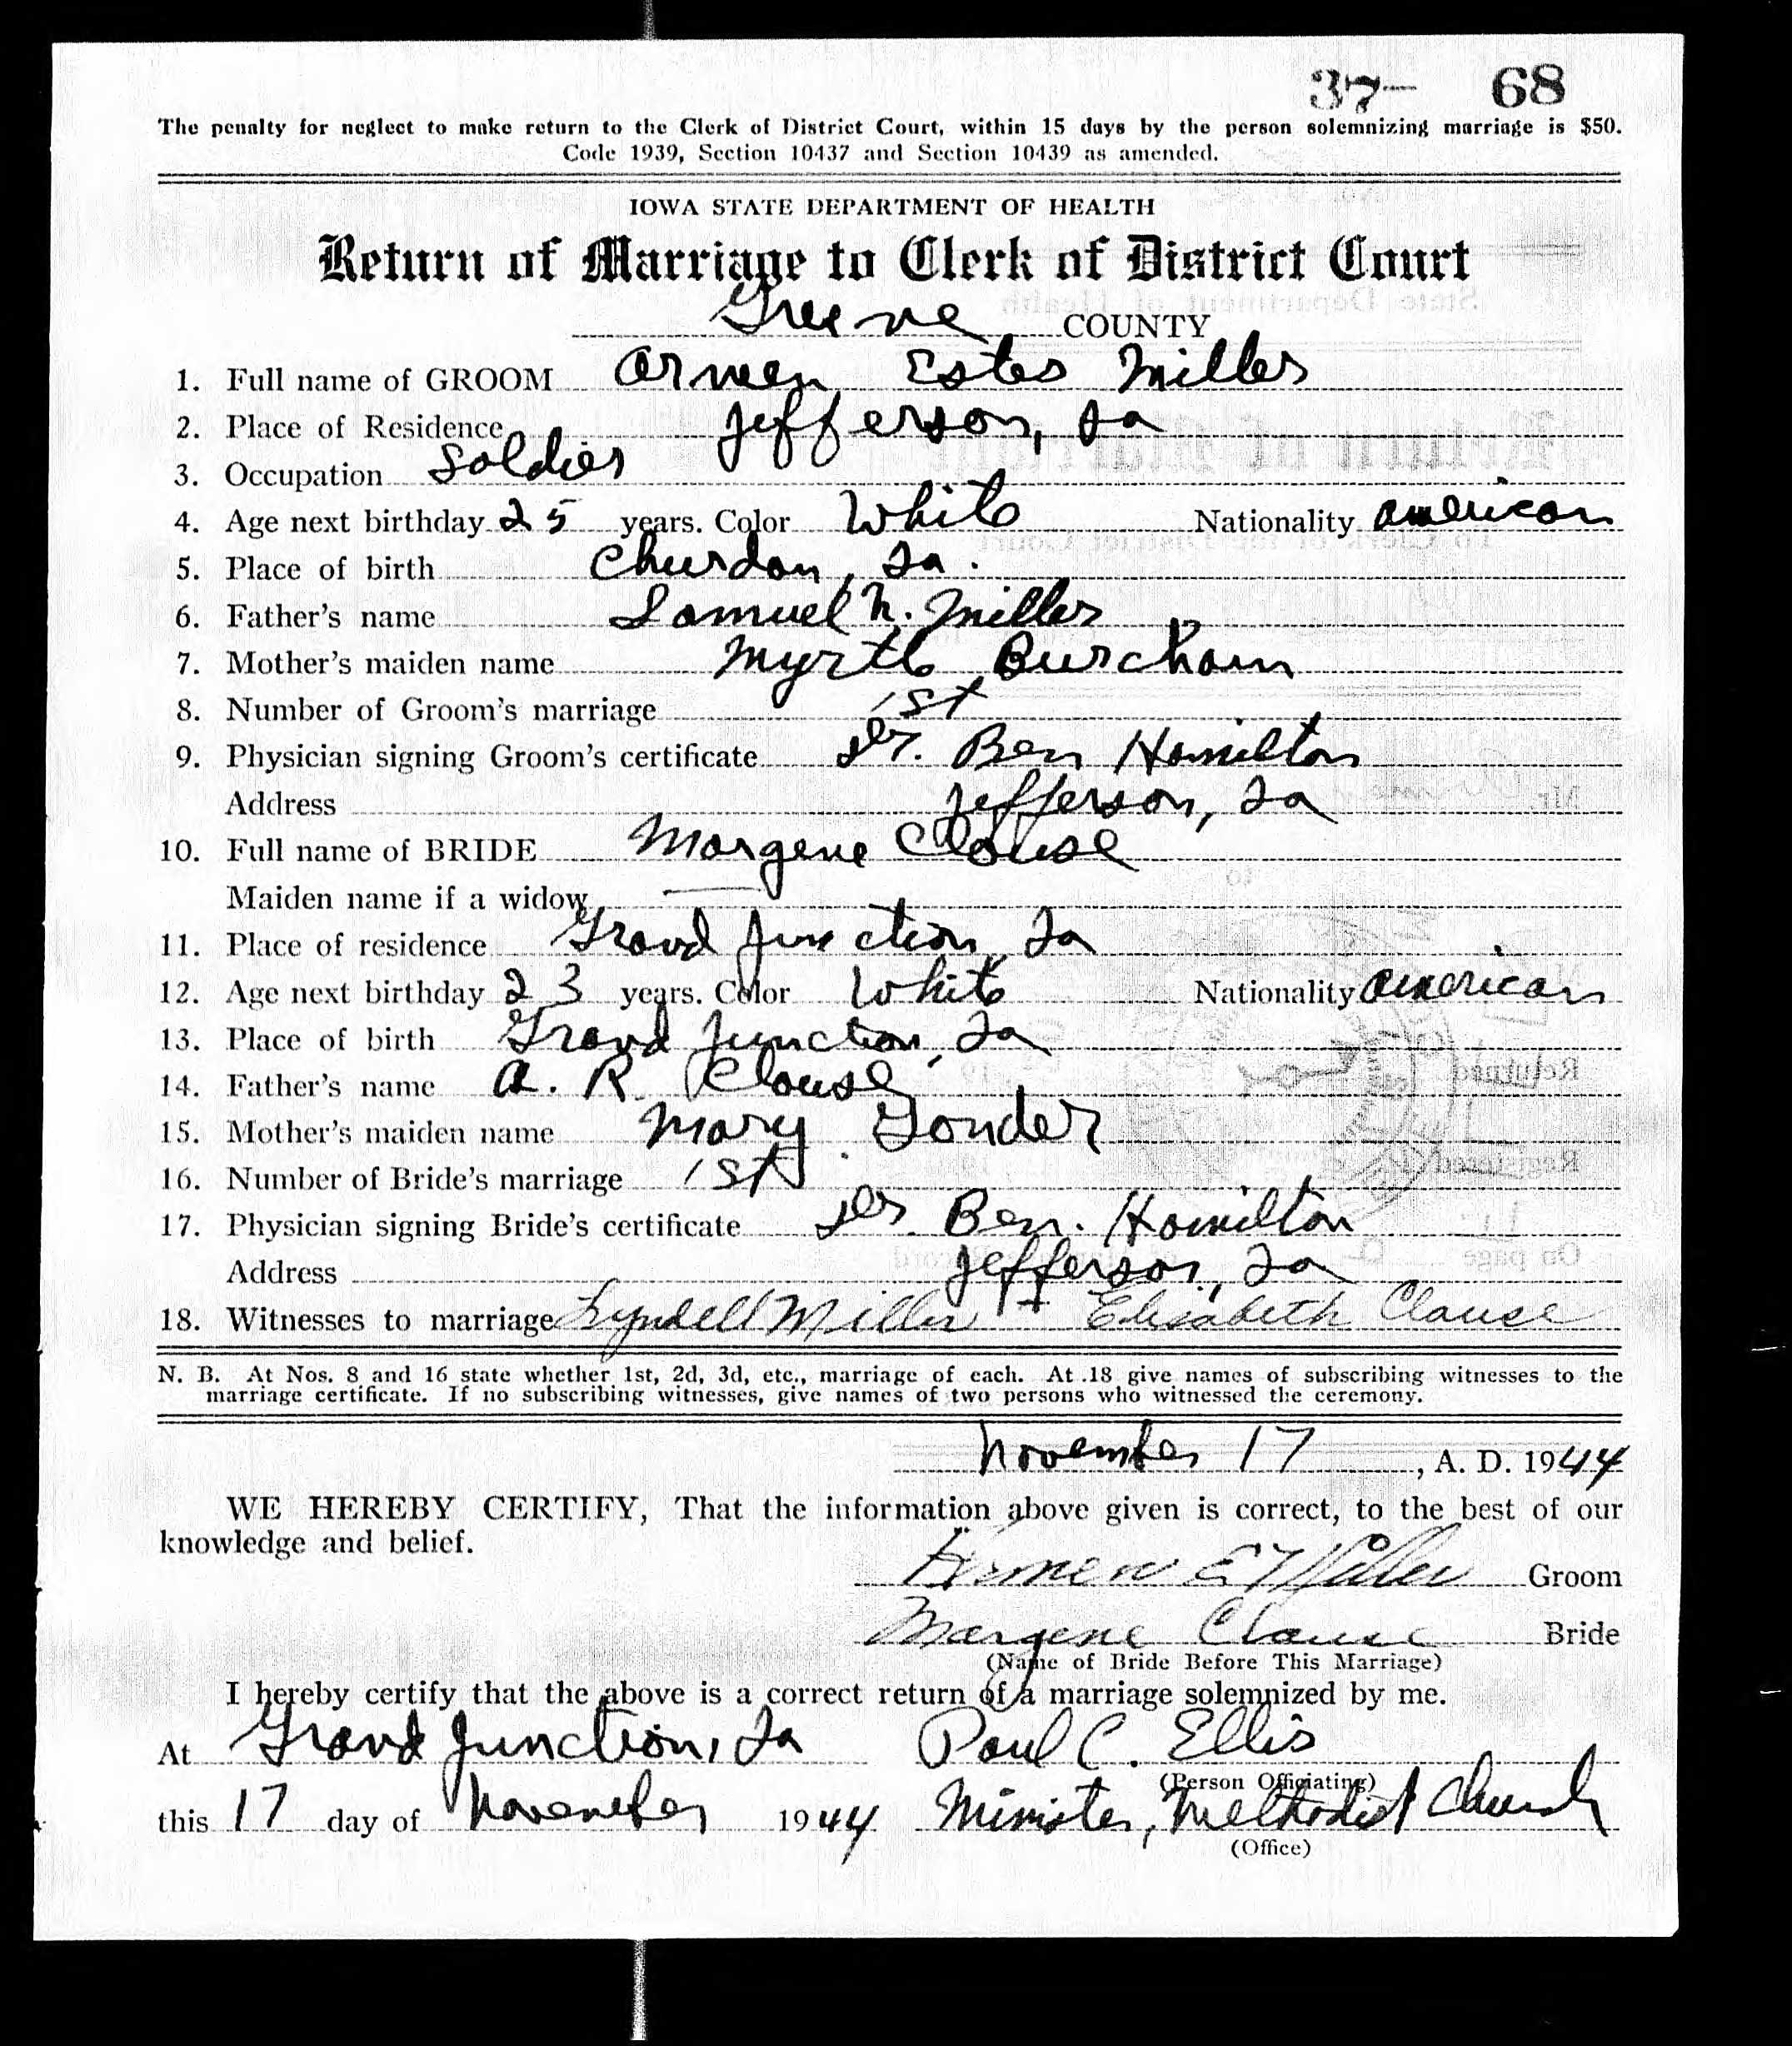 37- 68
The penalty for neglect to make return to the Clerk of District Court, within 15 days by the person solemnizing marriage is $50.
Code 1939, Section 10437 and Section 10439 as amended.
IOWA STATE DEPARTMENT OF HEALTH
Return of Marriage to Clerk of District Court
Greene COUNTY
1. Full name of GROOM Armen Estes Miller
2. Place of Residence Jefferson, Ia
3. Occupation Soldier
4. Age next birthday 25 years. Color White Nationality American
5. Place of birth Churdan, Ia.
6. Father's name Samuel N. Miller
7. Mother's maiden name Myrtle Burcham
8. Number of Groom's marriage 1st
9. Physician signing Groom's certificate Dr. Ben Hamilton
Address Jefferson, Ia
10. Full name of BRIDE Margene Clause
Maiden name if a widow
11. Place of residence Grand Junction, Ia
12. Age next birthday 23 years. Color White Nationality American
13. Place of birth Grand Junction, Ia
14. Father's name A. R. Clause
15. Mother's maiden name Mary Gonder
16. Number of Bride's marriage 1st
17. Physician signing Bride's certificate Dr Ben. Hamilton
Address Jefferson, Ia
18. Witnesses to marriage Lyndell Miller + Elisabeth Clause
N. B. At Nos. 8 and 16 state whether 1st, 2d, 3d, etc., marriage of each. At 18 give names of subscribing witnesses to the
marriage certificate. If no subscribing witnesses, give names of two persons who witnessed the ceremony.
November 17, A. D. 1944
WE HEREBY CERTIFY, That the information above given is correct, to the best of our
knowledge and belief.
Armen E Miller Groom
Margene Clause Bride
(Name of Bride Before This Marriage)
I hereby certify that the above is a correct return of a marriage solemnized by me.
At Grand Junction, Ia Paul C. Ellis
(Person Officiating)
this 17 day of November 1944 Minister, Methodist Church
(Office)